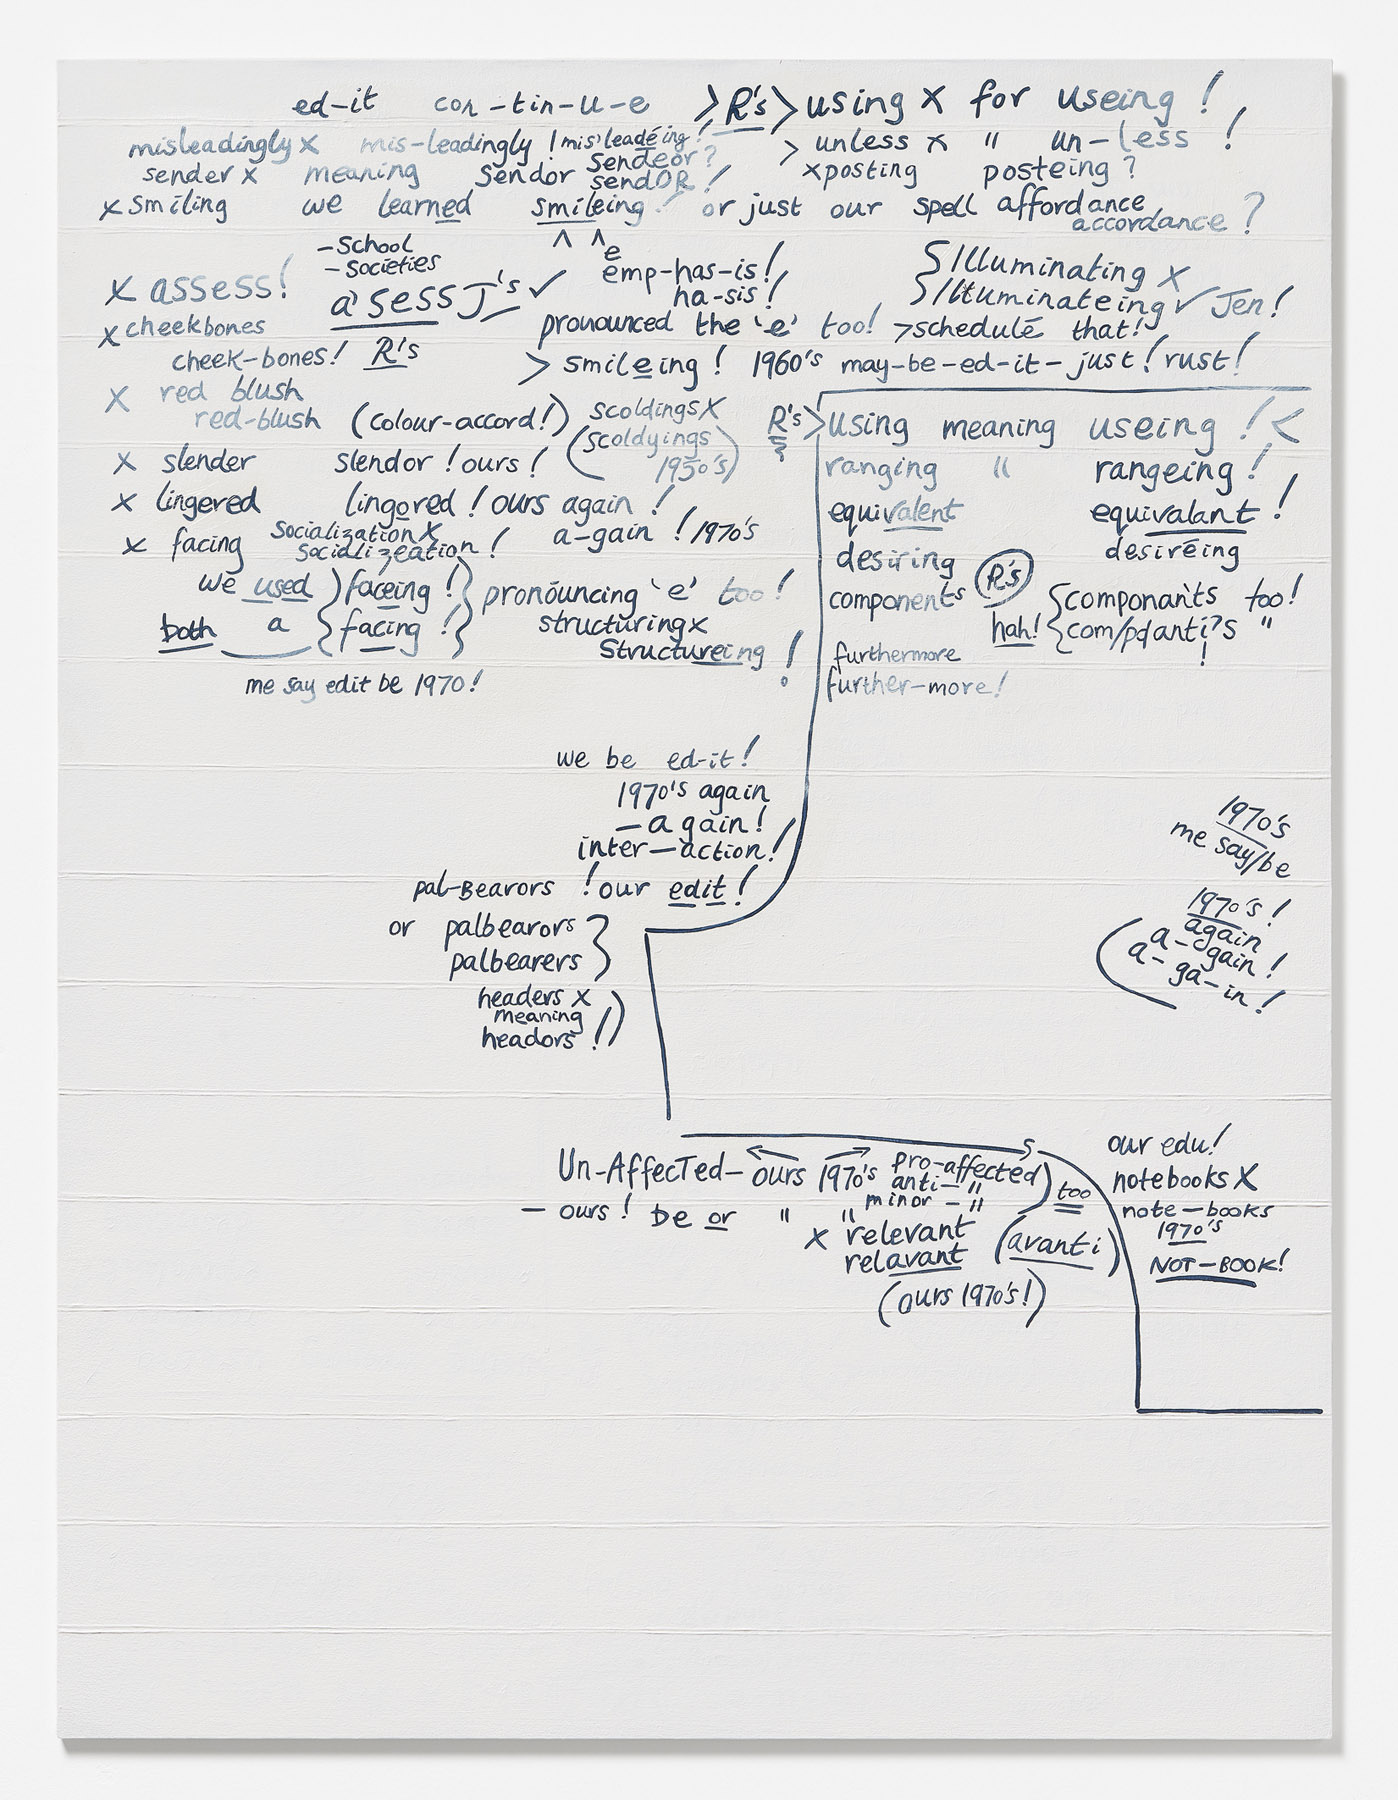 ed-it con-tin-u-e > R's > using x for useing !
misleadingly x mis-leadingly ! mis'leadeing ! > unless x " un-less !
sender x meaning sendor sendeor ? xposting posteing ?
sendOR !
x smiling we learned smileing ! or just our spell affordance
accordance ?
- School
- Societies
^ ^ e
x assess! a'sess J's ✓ emp-has-is! { Illuminating x
ha-sis! { Illuminateing ✓ Jen!
x cheekbones pronounced the 'e' too! > schedule that!
cheek-bones! R's > smileing ! 1960's may-be-ed-it-just! rust!
x red blush
red-blush (colour-accord!) scoldings x R's > using meaning useing ! <
(scoldyings 1950's)
x slender slendor ! ours ! ranging " rangeing !
x lingered lingored ! ours again ! equivalent equivalant !
x facing socialization x a-gain ! 1970's desiring desireing
socializeation !
we used } faceing ! } pronouncing 'e' too! components R's { componants too!
both a { facing ! } structuring x hah! { com/pdanti?'s " !
structureing ! furthermore
me say edit be 1970! further-more!
we be ed-it!
1970's again
- a gain!
inter-action!
pal-Bearors ! our edit !
or palbearors }
palbearers }
headers x
meaning
headors !)
1970's
me say/be
1970's !
again
a-again !
a-ga-in !
Un-AffecTed- ours 1970's pro-affected
anti- "
minor - " ) too
- ours! be or " "
x relevant
relavant (avanti)
(ours 1970's!)
our edu!
notebooks X
note-books
1970's
NOT-BOOK!